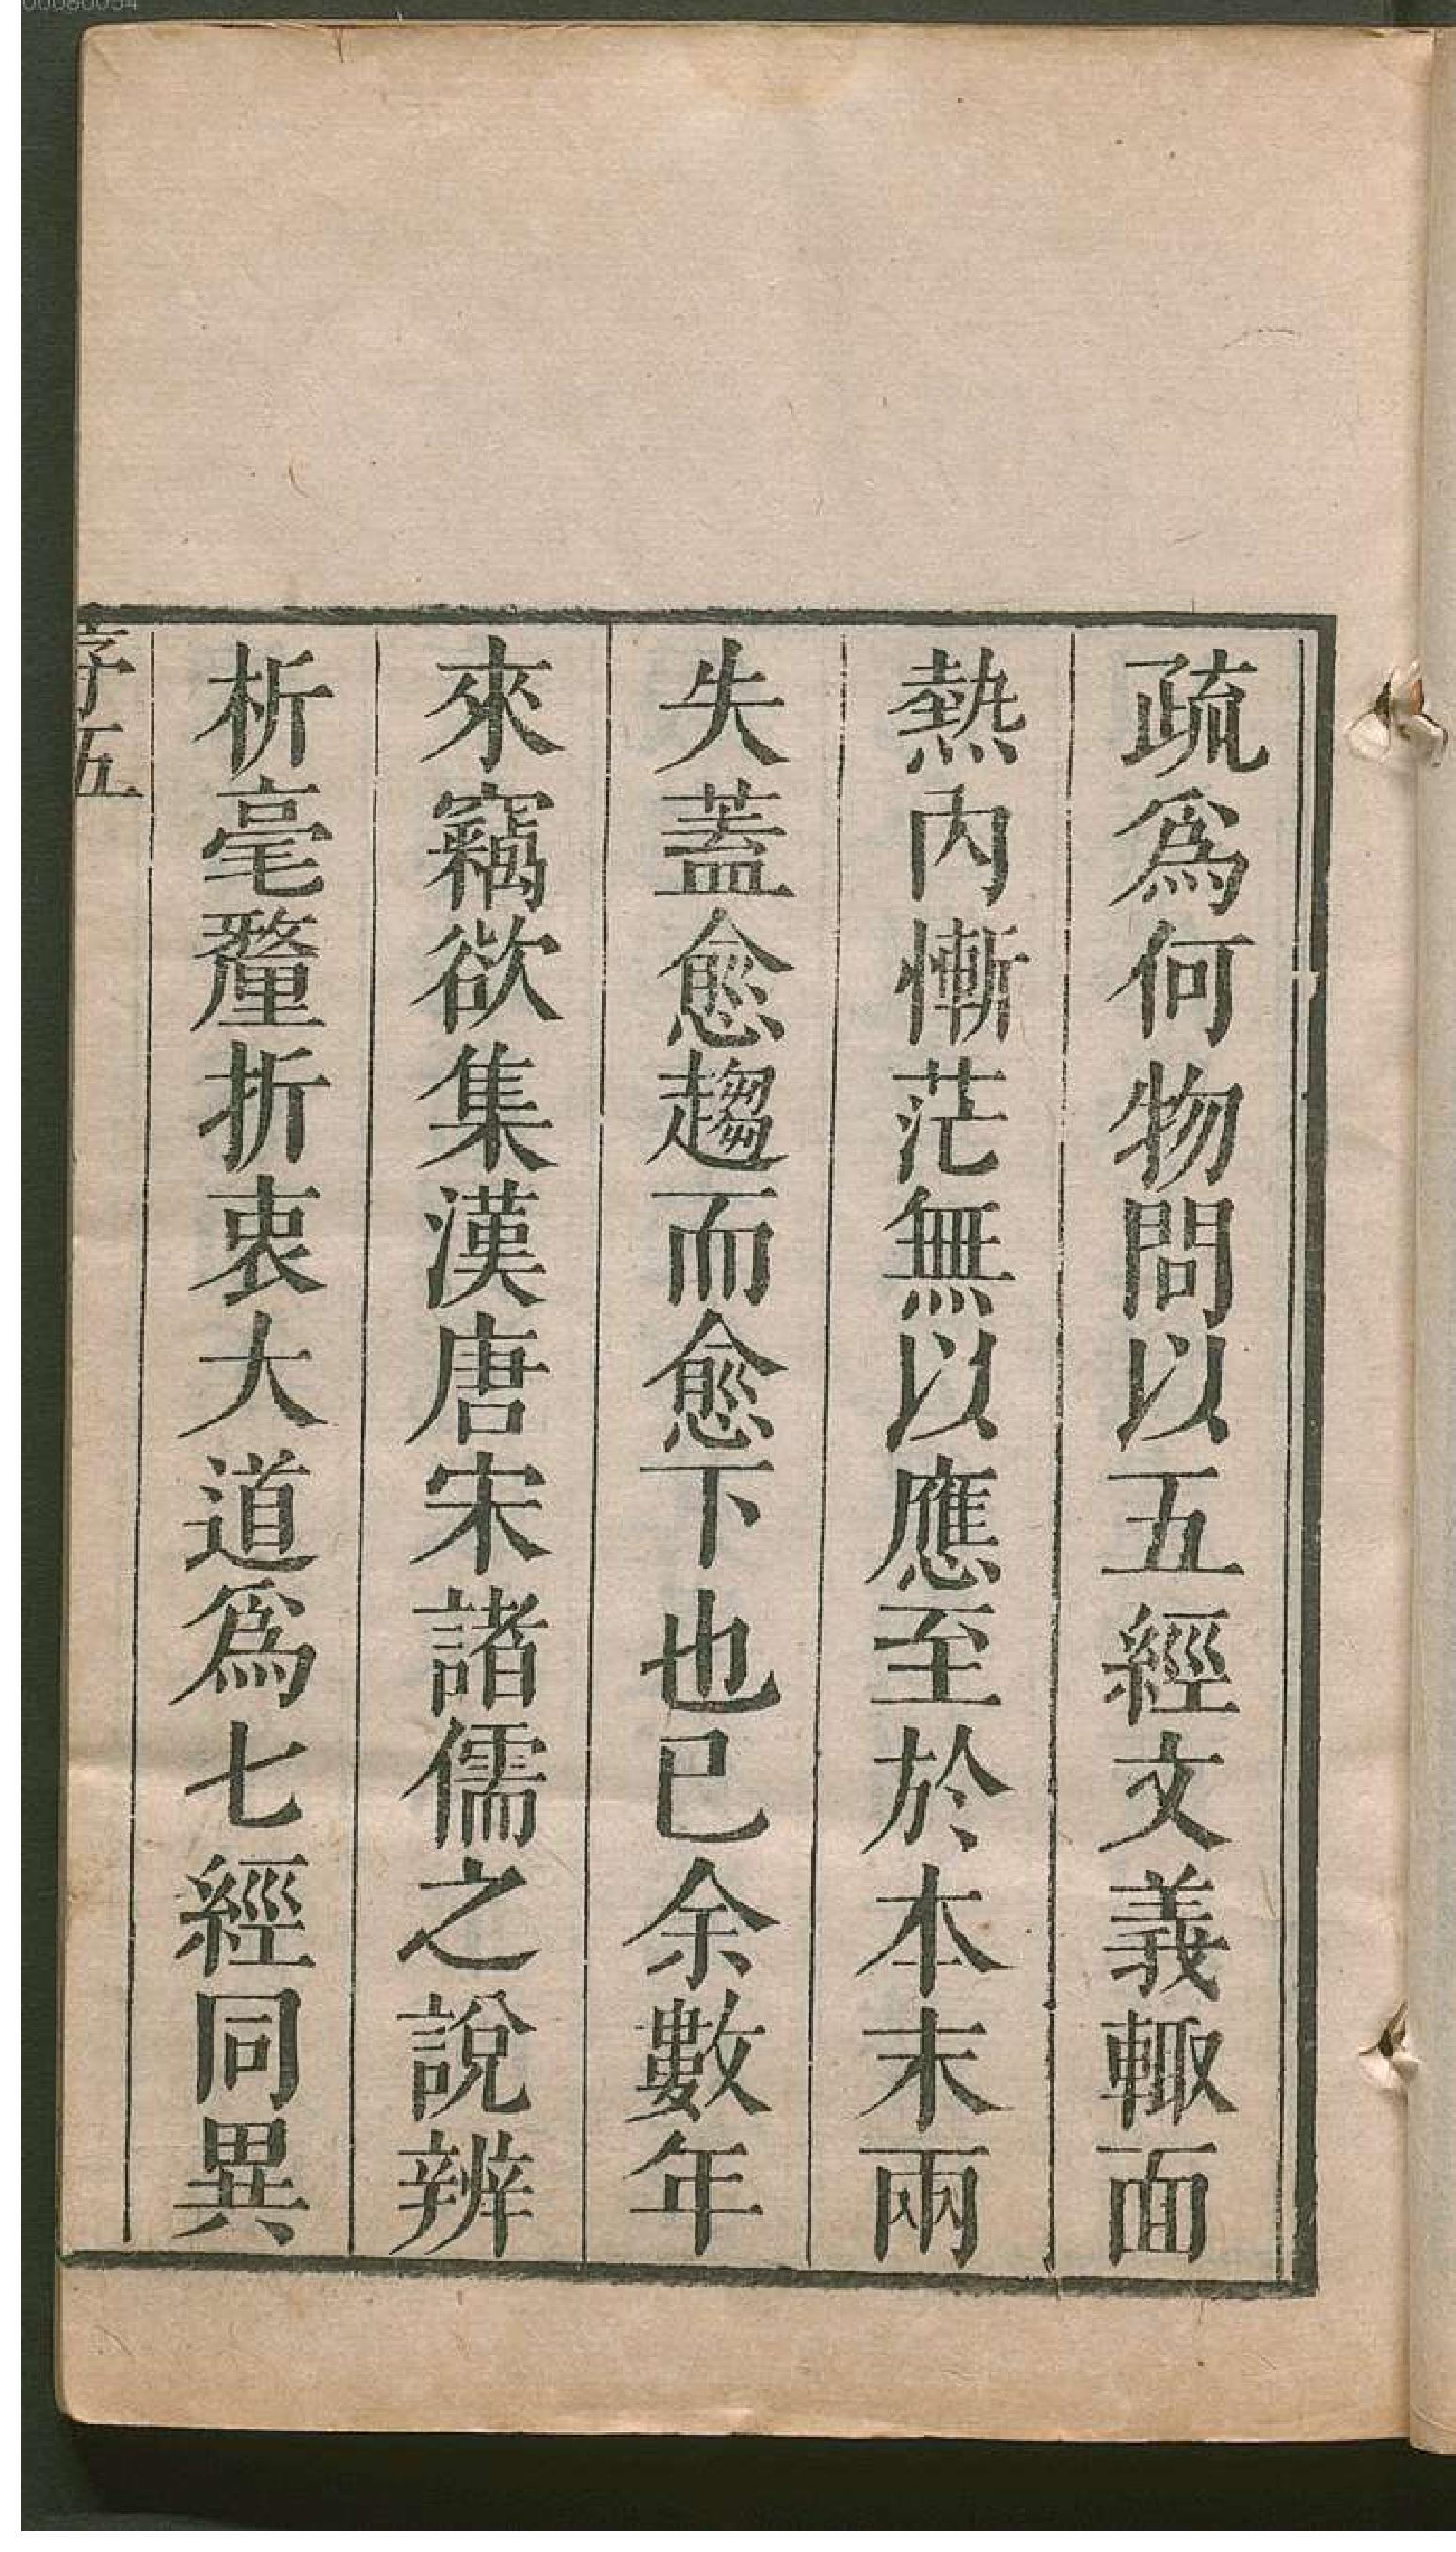 疏爲何物問以五經文義輙面
熱內慚茫無以應至於本末兩
失蓋愈趨而愈下也已余數年
來竊欲集漢唐宋諸儒之說辨
析毫釐折衷大道爲七經同異
序五